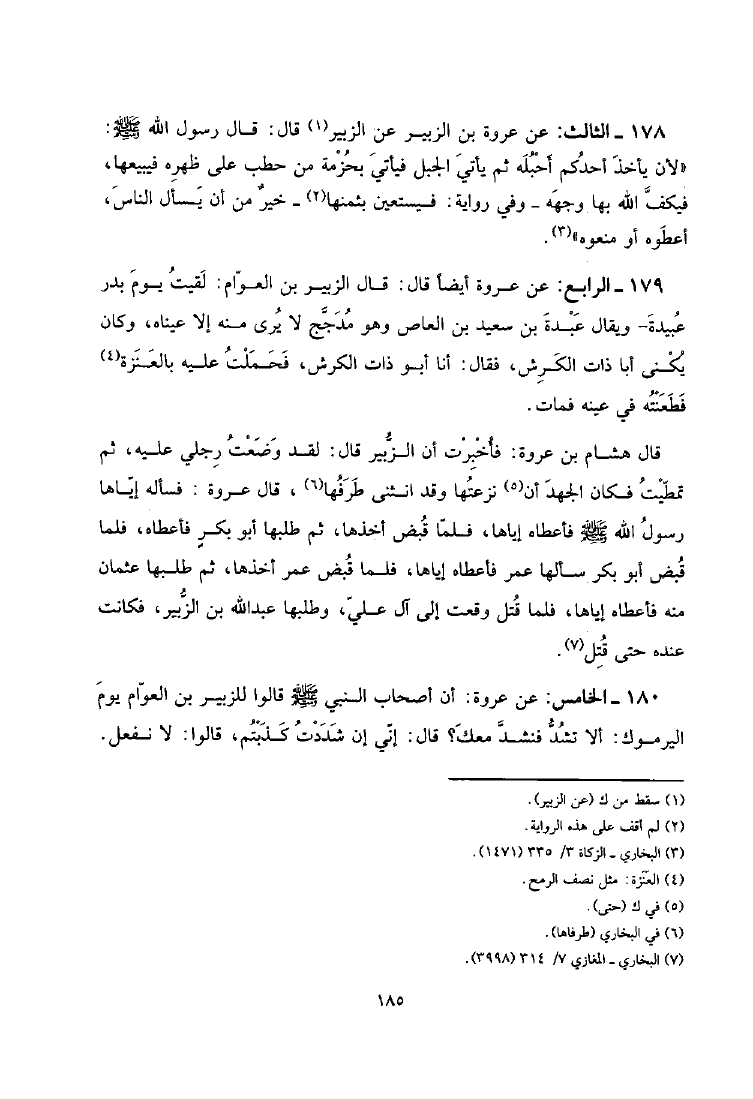 ١٧٨ ـ الثالث: عن عروة بن الزبيـر عن الزبير(١) قال: قـال رسول الله ﷺ:
«لأن يأخذَ أحدُكم أحْبُلَه ثم يأتيَ الجبل فيأتيَ بحُزْمة من حطب على ظهره فيبيعها،
فيكفَّ الله بها وجهَه ـ وفي رواية: فـيستعين بثمنها(٢) ـ خيرٌ من أن يَـسأل الناسَ،
أعطَوه أو منعوه»(٣).
١٧٩ ـ الرابع: عن عـروة أيضاً قال: قـال الزبيـر بن العـوّام: لَقيتُ يـومَ بَدر
عُبيدةَ- ويقال عَبْـدةَ بن سعيد بن العاص وهو مُدَجَّج لا يُرى منـه إلا عيناه، وكان
يُكْـنى أبا ذات الكَـرِش، فقال: أنا أبـو ذات الكرش، فَحَـمَلْتُ علـيه بالعَـنَزة(٤)
فَطَعَنْتُه في عينه فمات.
قال هشـام بن عروة: فأُخْبِرْت أن الـزُّبير قال: لقـد وَضَعْتُ رِجلي علـيه، ثم
تمطّيْتُ فـكان الجهدَ أن(٥) نزعتُها وقد انـثنى طَرَفُها(٦) ، قال عـروة : فسأله إيّـاها
رسولُ الله ﷺ فأعطاه إياها، فـلمّا قُبض أخذها، ثم طلبها أبو بكـرٍ فأعطاه، فلما
قُبض أبو بكر سـألها عمر فأعطاه إياها، فلـما قُبض عمر أخذها، ثم طلـبها عثمان
منه فأعطاه إياها، فلما قُتل وقعت إلى آل علـيّ، وطلبها عبدالله بن الزُّبير، فكانت
عنده حتى قُتِل(٧).
١٨٠ ـ الخامس: عن عروة: أن أصحاب الـنبي ﷺ قالوا للزبيـر بن العوّام يومَ
اليرمـوك: ألا تشُدُّ فنشـدَّ معكَ؟ قال: إنّي إن شَدَدْتُ كَـذَبْتُم، قالوا: لا نـفعل.
(١) سقط من ك (عن الزبير).
(٢) لم أقف على هذه الرواية.
(٣) البخاري ـ الزكاة ٣/ ٣٣٥ (١٤٧١).
(٤) العنَزة: مثل نصف الرمح.
(٥) في ك (حتى).
(٦) في البخاري (طرفاها).
(٧) البخاري ـ المغازي ٧/ ٣١٤ (٣٩٩٨).
١٨٥